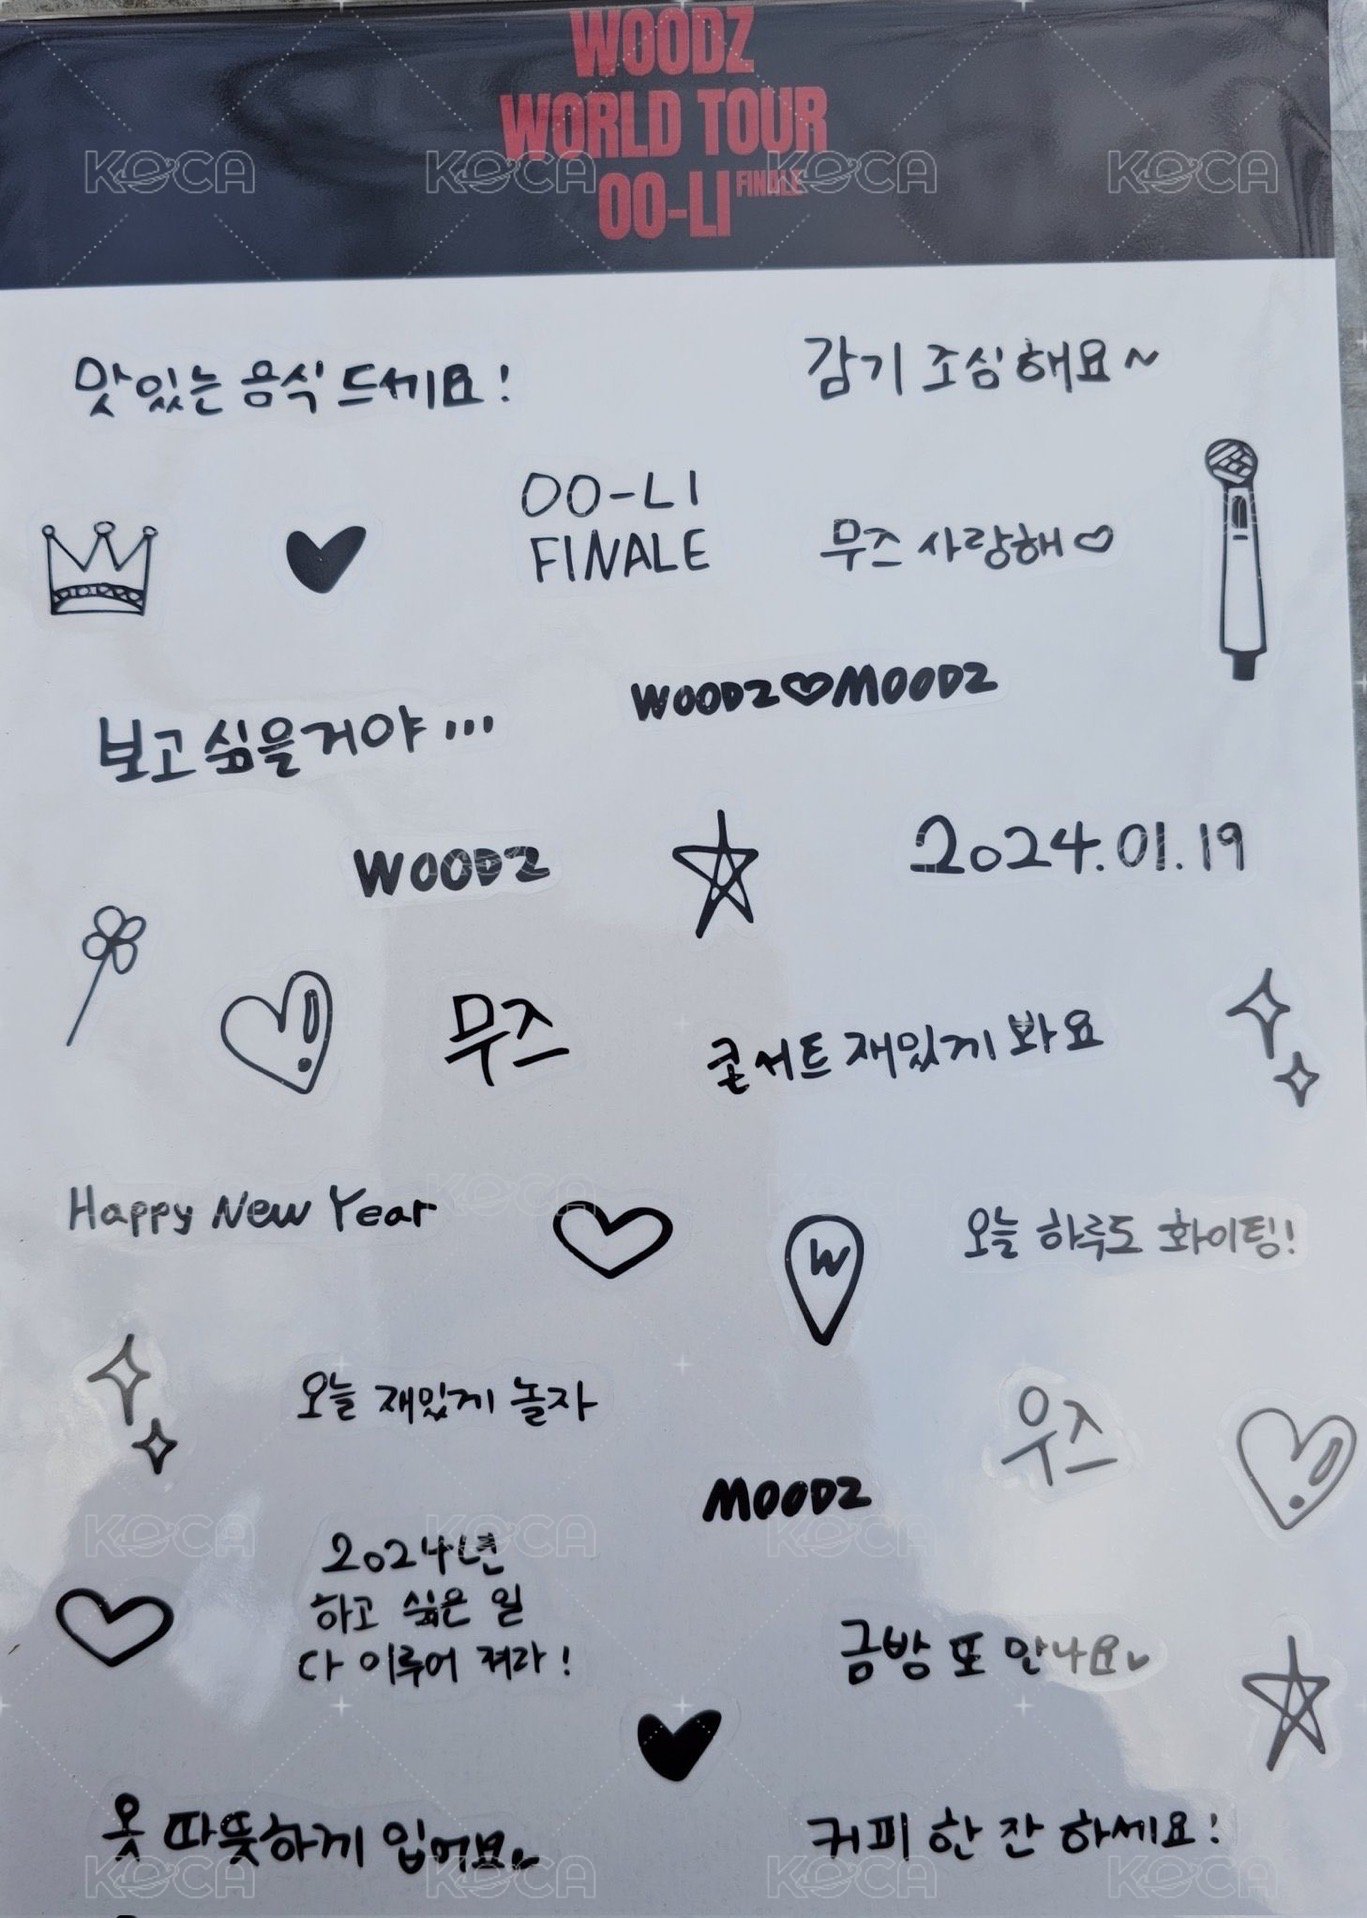 WOODZ
WORLD TOUR
OO-LI FINALE
맛있는 음식 드세요!
감기 조심해요~
OO-LI
FINALE
무즈 사랑해♡
WOODZ♡MOODZ
보고싶을거야...
WOODZ
2024.01.19
무즈
콘서트 재밌게 봐요
Happy New Year
W
오늘 하루도 화이팅!
오늘 재밌게 놀자
우즈
MOODZ
2024년
하고 싶은 일
다 이루어 져라!
금방 또 만나요
옷 따뜻하게 입어요
커피 한 잔 하세요!
KOCA